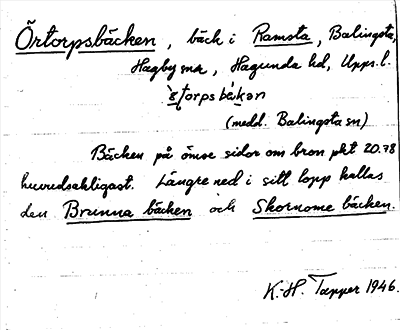 Örtorpsbäcken, bäck i Ramsta, Balingsta,
Hagby snr, Hagunda hd, Upps. l.
(medd. Balingsta sn)
Bäcken på ömse sidor om bron pkt 20.78
huvudsakligast. Längre ned i sitt lopp kallas
den Brunna bäcken och Skornome bäcken.
K.-H. Tapper 1946.